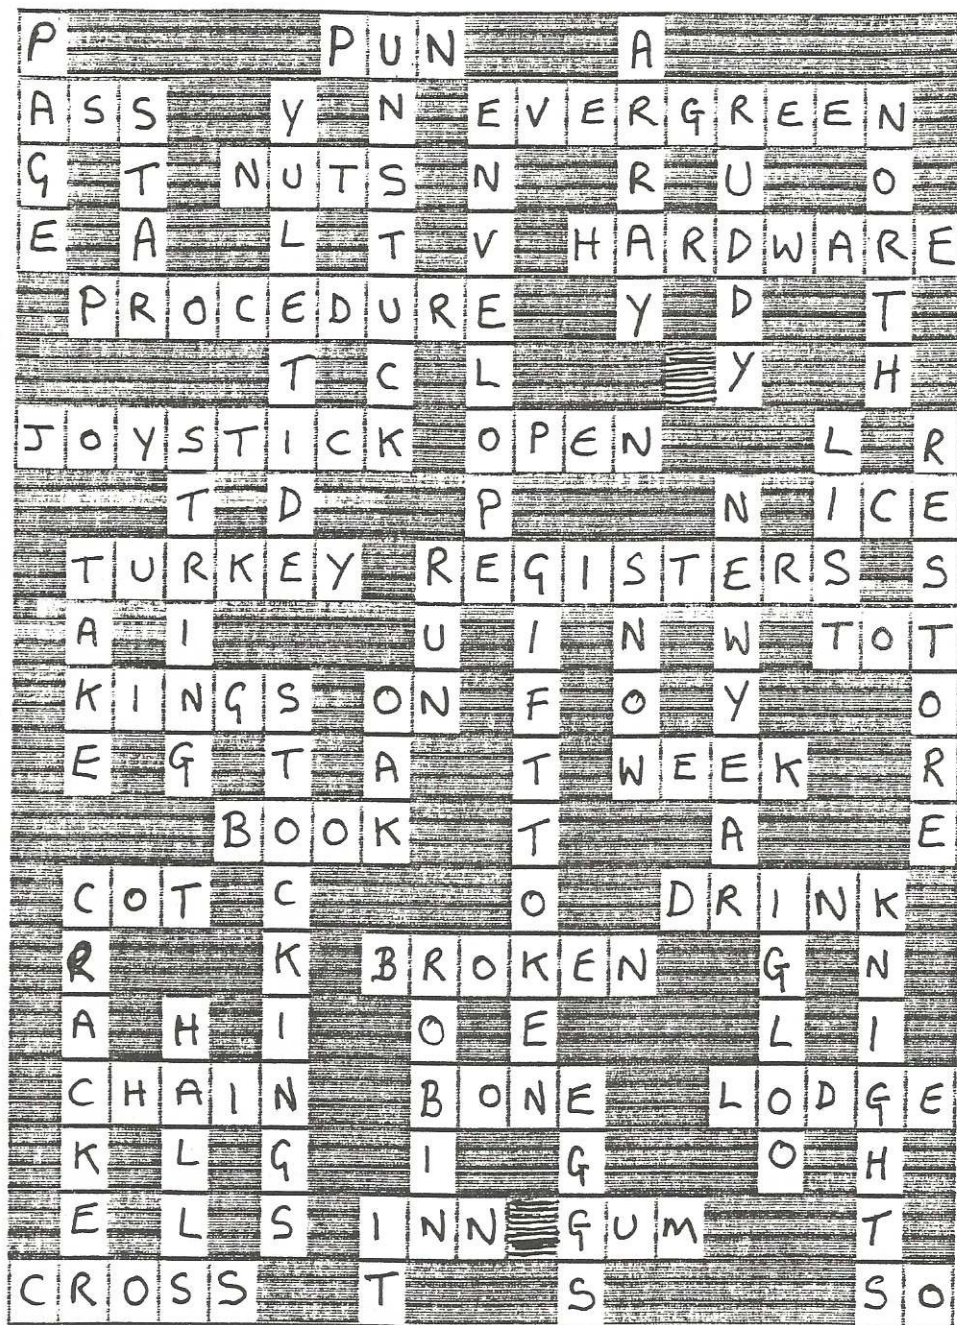 P PUN A
ASS Y N EVERGREEN
G T NUTS N R U O
E A L T V HARDWARE
PROCEDURE Y D T
T C L Y H
JOYSTICK OPEN L R
T D P N ICE
TURKEY REGISTERS S
A I U I N W TOT
KINGS ON F O Y O
E G T A T WEEK R
BOOK T A E
COT C O DRINK
R K BROKEN G N
A H I O E L I
CHAIN BONE LODGE
K L G I G O H
E L S INN GUM T
CROSS T S SO